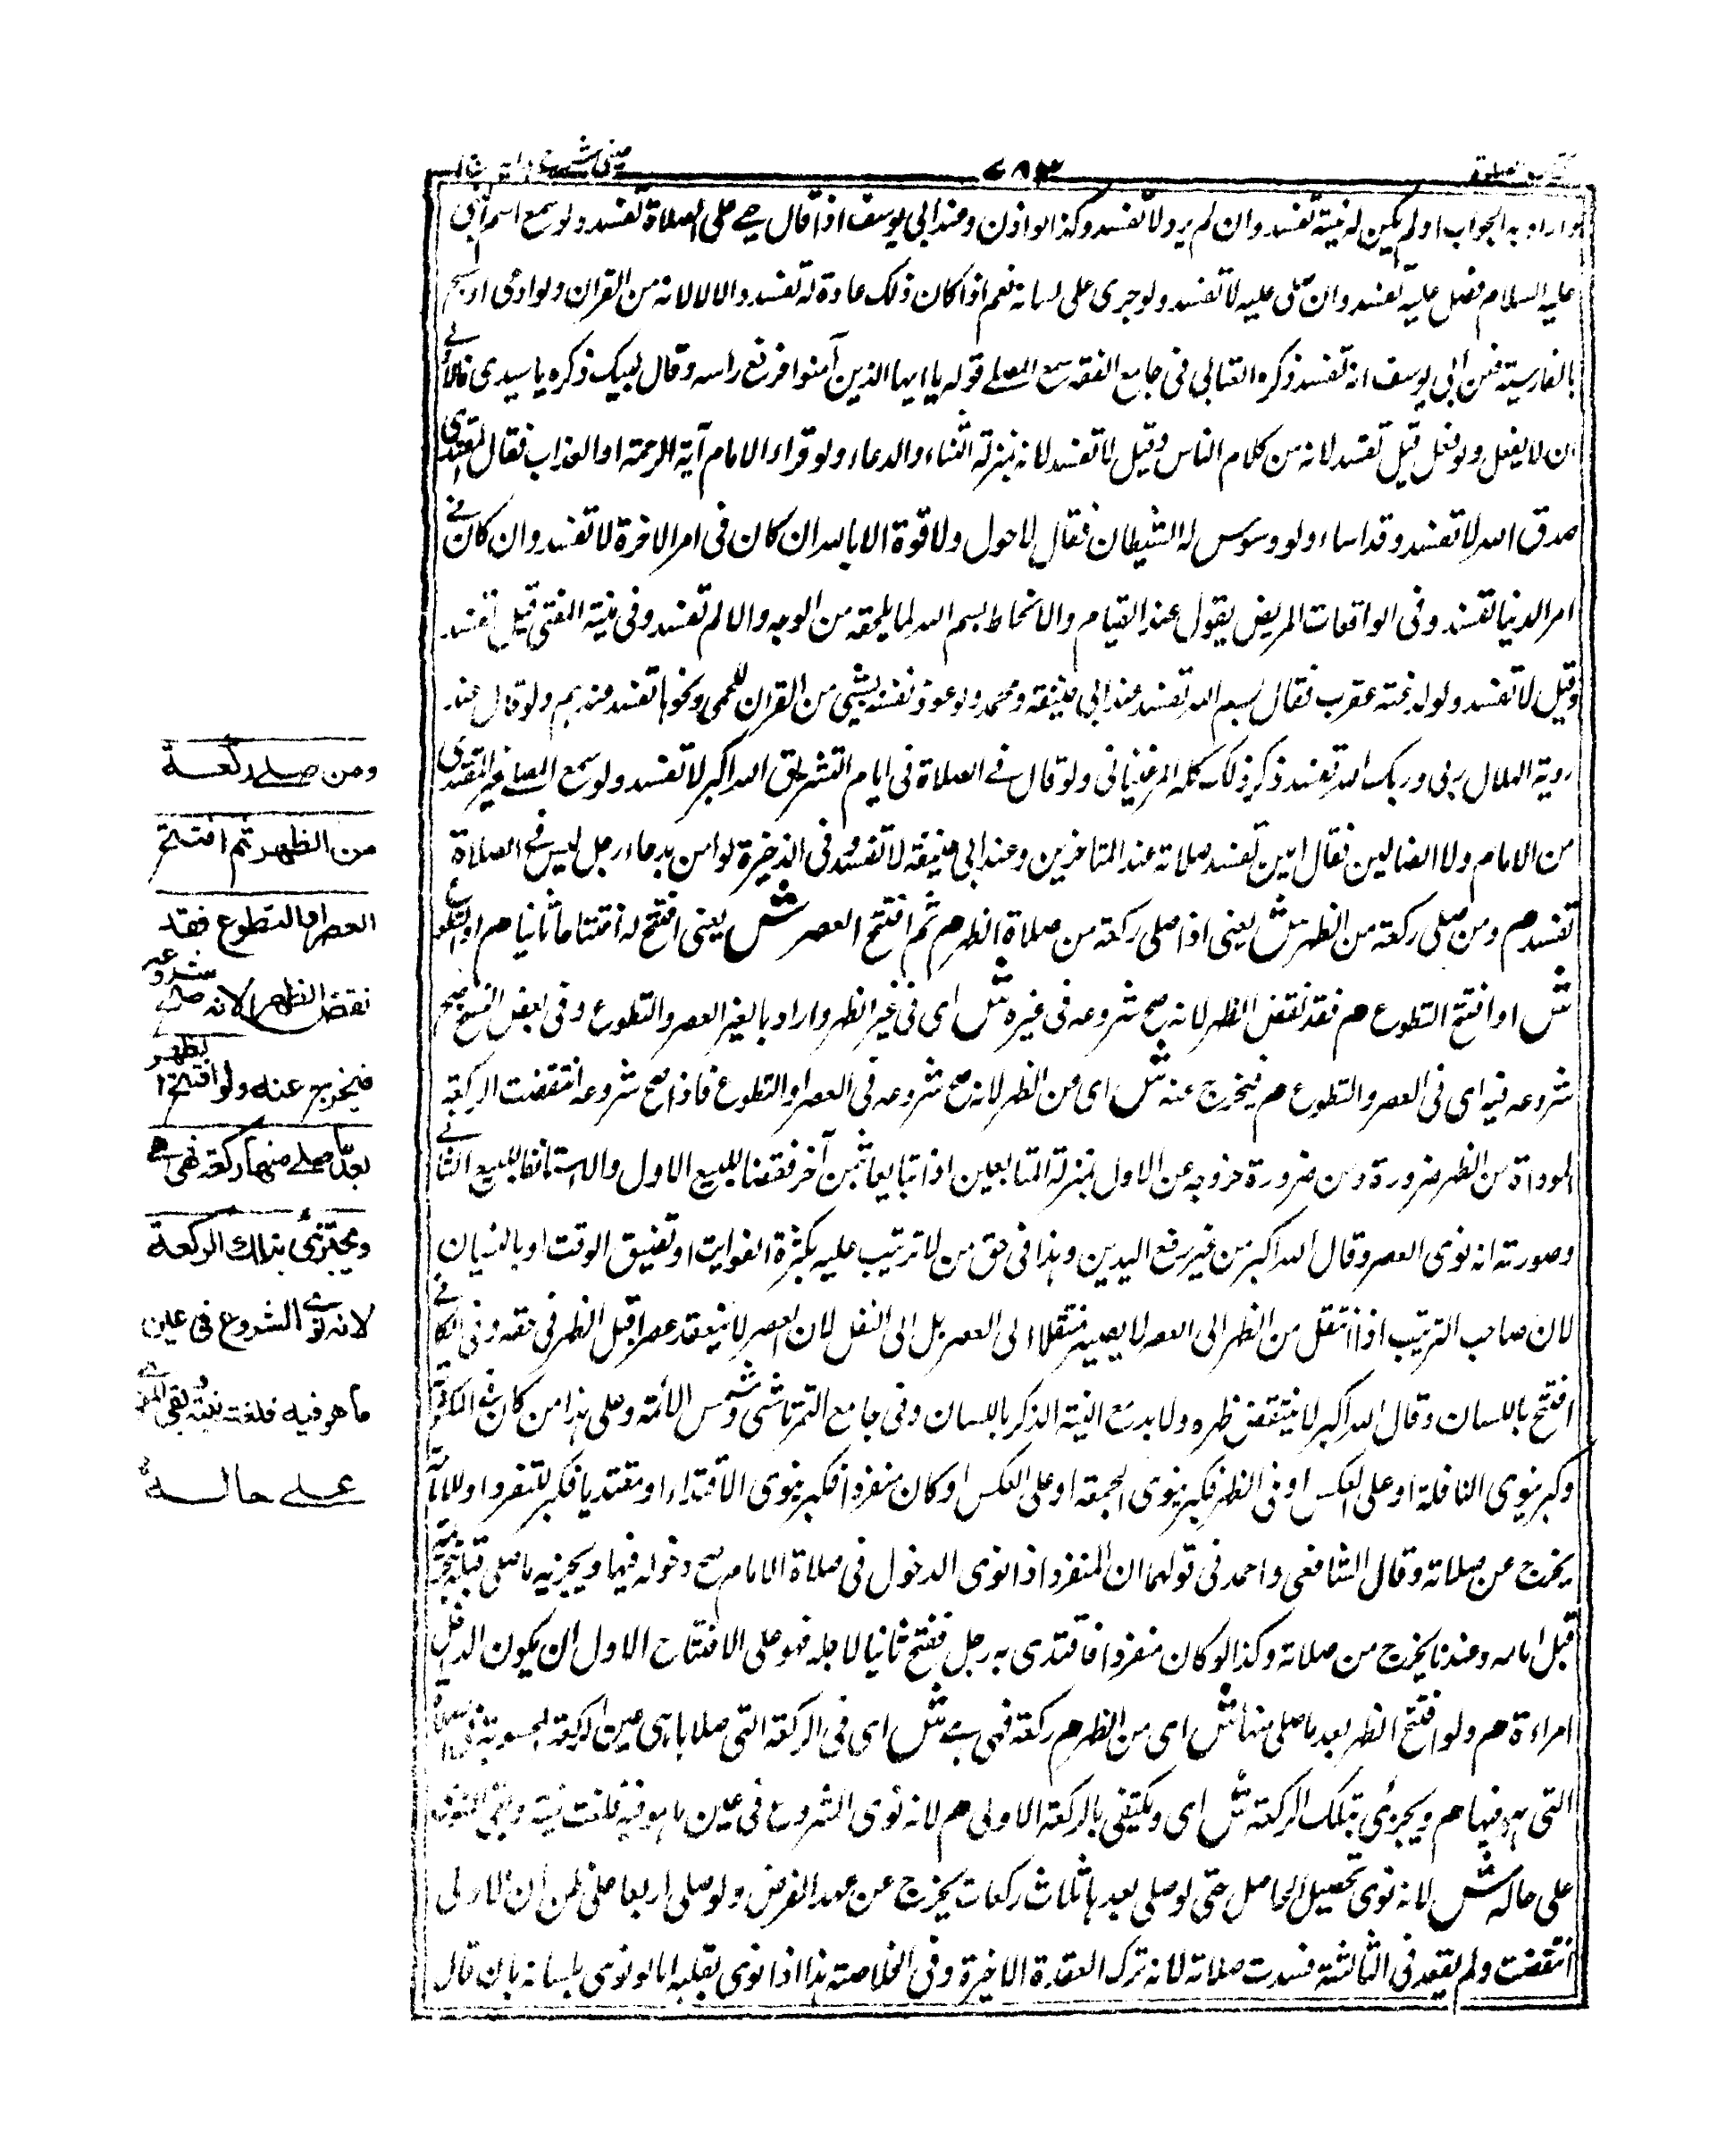 لو اراد به الجواب او لم يكن له نية تفسد وان لم يرد لا تفسد وكذا لو اذن وعند ابي يوسف اذا قال حي على الصلاة تفسد ولو سمع اسم النبي
عليه السلام فصلى عليه تفسد وان صلى عليه لا تفسد ولو جرى على لسانه نعم اذا كان ذلك عادة له تفسد والا لا لانه من القران ولو ادعى او سبح
بالفارسية فعن ابي يوسف انه تفسد ذكره العتابي في جامع الفقه سمع المصلي قوله يا ايها الذين آمنوا فرفع راسه وقال لبيك ذكره يا سيدي فالاولى
ان لا يفعل ولو فعل قيل تفسد لانه من كلام الناس وقيل لا تفسد لانه بمنزلة الثناء والدعاء ولو قراء الامام آية الرحمة او العذاب فقال المقتدى
صدق الله لا تفسد وقد اساء ولو وسوس له الشيطان فقال لا حول ولا قوة الا بالله ان كان في امر الاخرة لا تفسد وان كان في
امر الدنيا تفسد وفي الواقعات المريض يقول عند القيام والانحطاط بسم الله لما يلحقه من الوجه والا لم تفسد وفي منية المفتي قيل تفسد
وقيل لا تفسد ولو لدغته عقرب فقال بسم الله تفسد عند ابي حنيفة ومحمد ولو عوذ نفسه بشيئ من القران للحمى ونحوها تفسد عندهم ولو قال عند
روية الهلال ربي وربك الله تفسد ذكر ذلك كله المرغيناني ولو قال في الصلاة في ايام التشريق الله اكبر لا تفسد ولو سمع المصلي غير المقتدى
من الامام ولا الضالين فقال امين تفسد صلاته عند المتاخرين وعند ابي حنيفة لا تفسد وفي الذخيرة لو امن بدعاء رجل ليس في الصلاة
تفسد م ومن صلى ركعة من الظهر ش يعني اذا صلى ركعة من صلاة الظهر م ثم افتتح العصر ش يعني افتتح له افتتاحا ثانيا م او التطوع
ش او افتتح التطوع م فقد نقض الظهر لانه صح شروعه في غيره ش اى في غير الظهر واراد بالغير العصر والتطوع وفي بعض النسخ صح
شروعه فيه اى في العصر والتطوع م فيخرج عنه ش اى من الظهر لانه صح شروعه في العصر او التطوع فاذا صح شروعه انتقضت الركعة
الموداة من الظهر ضرورة ومن ضرورة خروجه عن الاول بمنزلة المتبايعين اذا تبايعا بثمن آخر فقضا للبيع الاول والاستانفا للبيع الثاني
وصورته انه نوى العصر وقال الله اكبر من غير رفع اليدين وهذا في حق من لا ترتيب عليه بكثرة الفوايت او تضيق الوقت او بالنسيان
لان صاحب الترتيب اذا انتقل من الظهر الى العصر لا يصير منتقلا الى العصر بل الى النفل لان العصر لا ينعقد عصرا قبل الظهر في حقه وفي الكافي
افتتح باللسان وقال الله اكبر لا ينتقض ظهره ولا بد مع النية الذكر باللسان وفي جامع التمرتاشي وشمس الائمة وعلى هذا من كان في المكتوبة
وكبر ينوى النافلة او على العكس او في الظهر فكبر ينوى الجمعة او على العكس او كان منفردا فكبر ينوى الاقتداء او مقتديا فكبر للتفرد او للامامة
يخرج عن صلاته وقال الشافعي واحمد في قولهما ان المنفرد اذا نوى الدخول في صلاة الامام صح دخوله فيها ويجزيه ما صلى قبله بتحريمة
قبل امامه وعندنا يخرج من صلاته وكذا لو كان منفردا فاقتدى به رجل فيفتتح ثانيا لاجله فهو على الافتتاح الاول الا ان يكون الداخل
امراءة م ولو افتتح الظهر بعد ما صلى منها ش اى من الظهر م ركعة فهي هي ش اى في الركعة التي صلاها هي عين الركعة المحسوبة في
التي هو فيها م ويجزئ بتلك الركعة ش اى ويكتفي بالركعة الاولى م لانه نوى الشروع في عين ما هو فيه فلغت نيته وبقي المنوى
على حاله ش لانه نوى تحصيل الحاصل حتى لو صلى بعدها ثلاث ركعات يخرج عن عهد الفرض ولو صلى اربعا على ظن ان الاولى
انتقضت ولم يقعد في الثالثة فسدت صلاته لانه ترك القعدة الاخيرة وفي الخلاصة هذا اذا نوى بقلبه اما لو نوى بلسانه بان قال
ومن صلے ركعة
من الظهر ثم افتتح
العصر او التطوع فقد
نقض الظهر لانه صح شروعه
فيخرج عنه ولو افتتح الظهر
بعد ما صلے منها ركعة فهي هي
ويجتزئ بتلك الركعة
لانه نوى الشروع في عين
ما هو فيه فلغت نيته وبقي المنوى
علے حاله